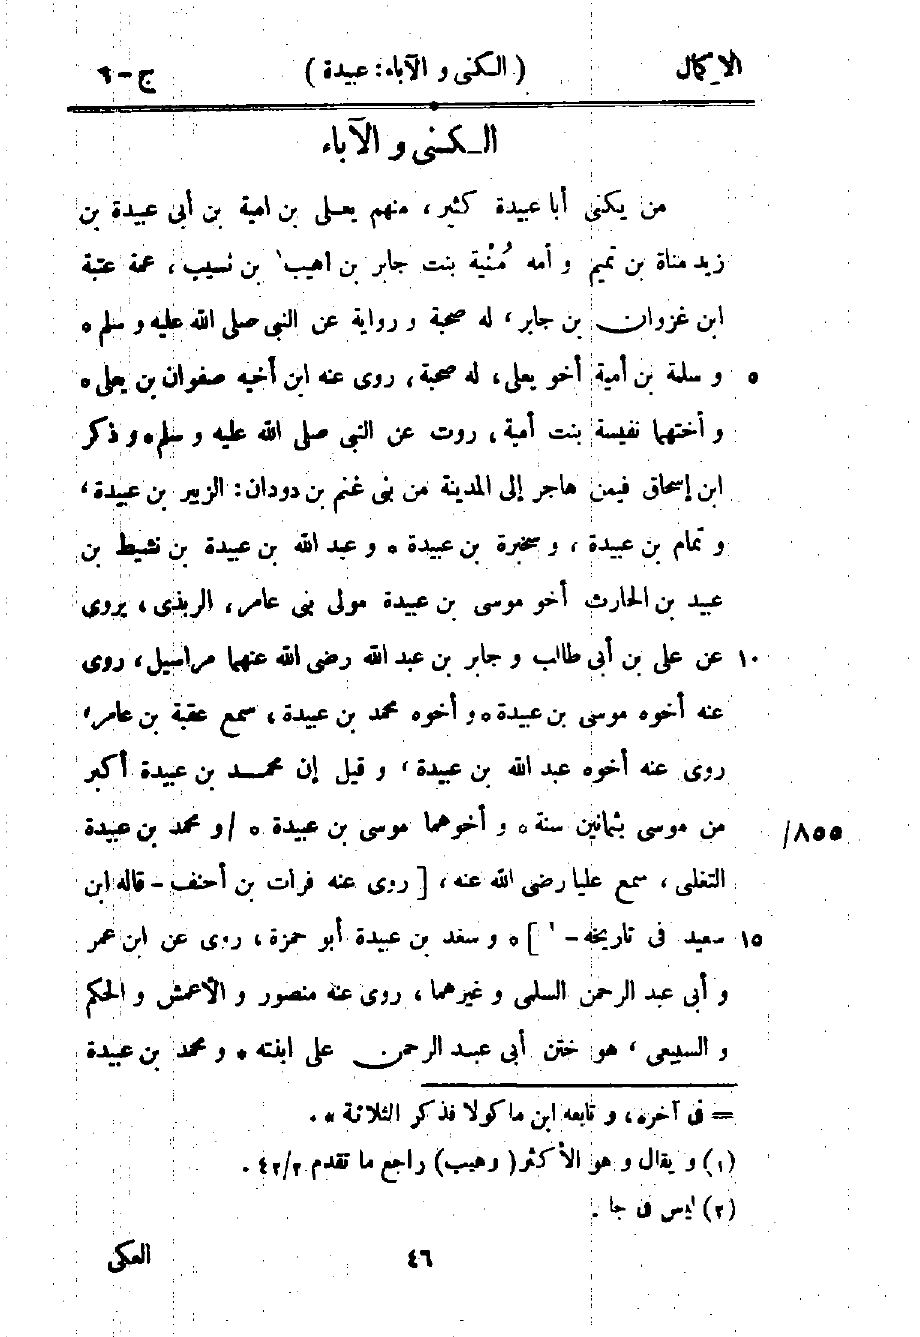 الإكمال ( الكنى و الآباء: عبيدة ) ج-٦
الكنى و الآباء
من يكنى أبا عبيدة كثير، منهم يعلى بن امية بن أبى عبيدة بن
زيد مناة بن تميم و أمه مُنْية بنت جابر بن اهيب¹ بن نسيب، عمة عتبة
ابن غزوان بن جابر، له صحبة و رواية عن النبى صلى الله عليه و سلم ه
٥ و سلمة بن أمية أخو يعلى، له صحبة، روى عنه ابن أخيه صفوان بن يعلى ه
و أختهما نفيسة بنت أمية، روت عن النبى صلى الله عليه و سلم ه و ذكر
ابن إسحاق فيمن هاجر إلى المدينة من بنى غنم بن دودان: الزبير بن عبيدة،
و تمام بن عبيدة، و سخبرة بن عبيدة ه و عبد الله بن عبيدة بن نشيط بن
عبيد بن الحارث أخو موسى بن عبيدة مولى بنى عامر، الربذى، يروى
١٠ عن على بن أبى طالب و جابر بن عبد الله رضى الله عنهما مراسيل، روى
عنه أخوه موسى بن عبيدة ه و أخوه محمد بن عبيدة، سمع عقبة بن عامر،
روى عنه أخوه عبد الله بن عبيدة، و قيل إن محمد بن عبيدة أكبر
من موسى بثمانين سنة ه و أخوهما موسى بن عبيدة ه /و محمد بن عبيدة
/٨٥٥
التغلبى، سمع عليا رضى الله عنه، [ روى عنه فرات بن أحنف - قاله ابن
١٥ سعيد فى تاريخه - ² ] ه و سعد بن عبيدة أبو حمزة، روى عن ابن عمر
و أبى عبد الرحمن السلمى و غيرهما، روى عنه منصور و الأعمش و الحكم
و السبيعى، هو ختن أبى عبد الرحمن على ابنته ه و محمد بن عبيدة
= فى آخره، و تابعه ابن ماكولا فذكر الثلاثة ه .
(١) و يقال و هو الأكثر( وهيب) راجع ما تقدم ٤٢/٢ .
(٢) ليس فى جا .
٤٦ العكى